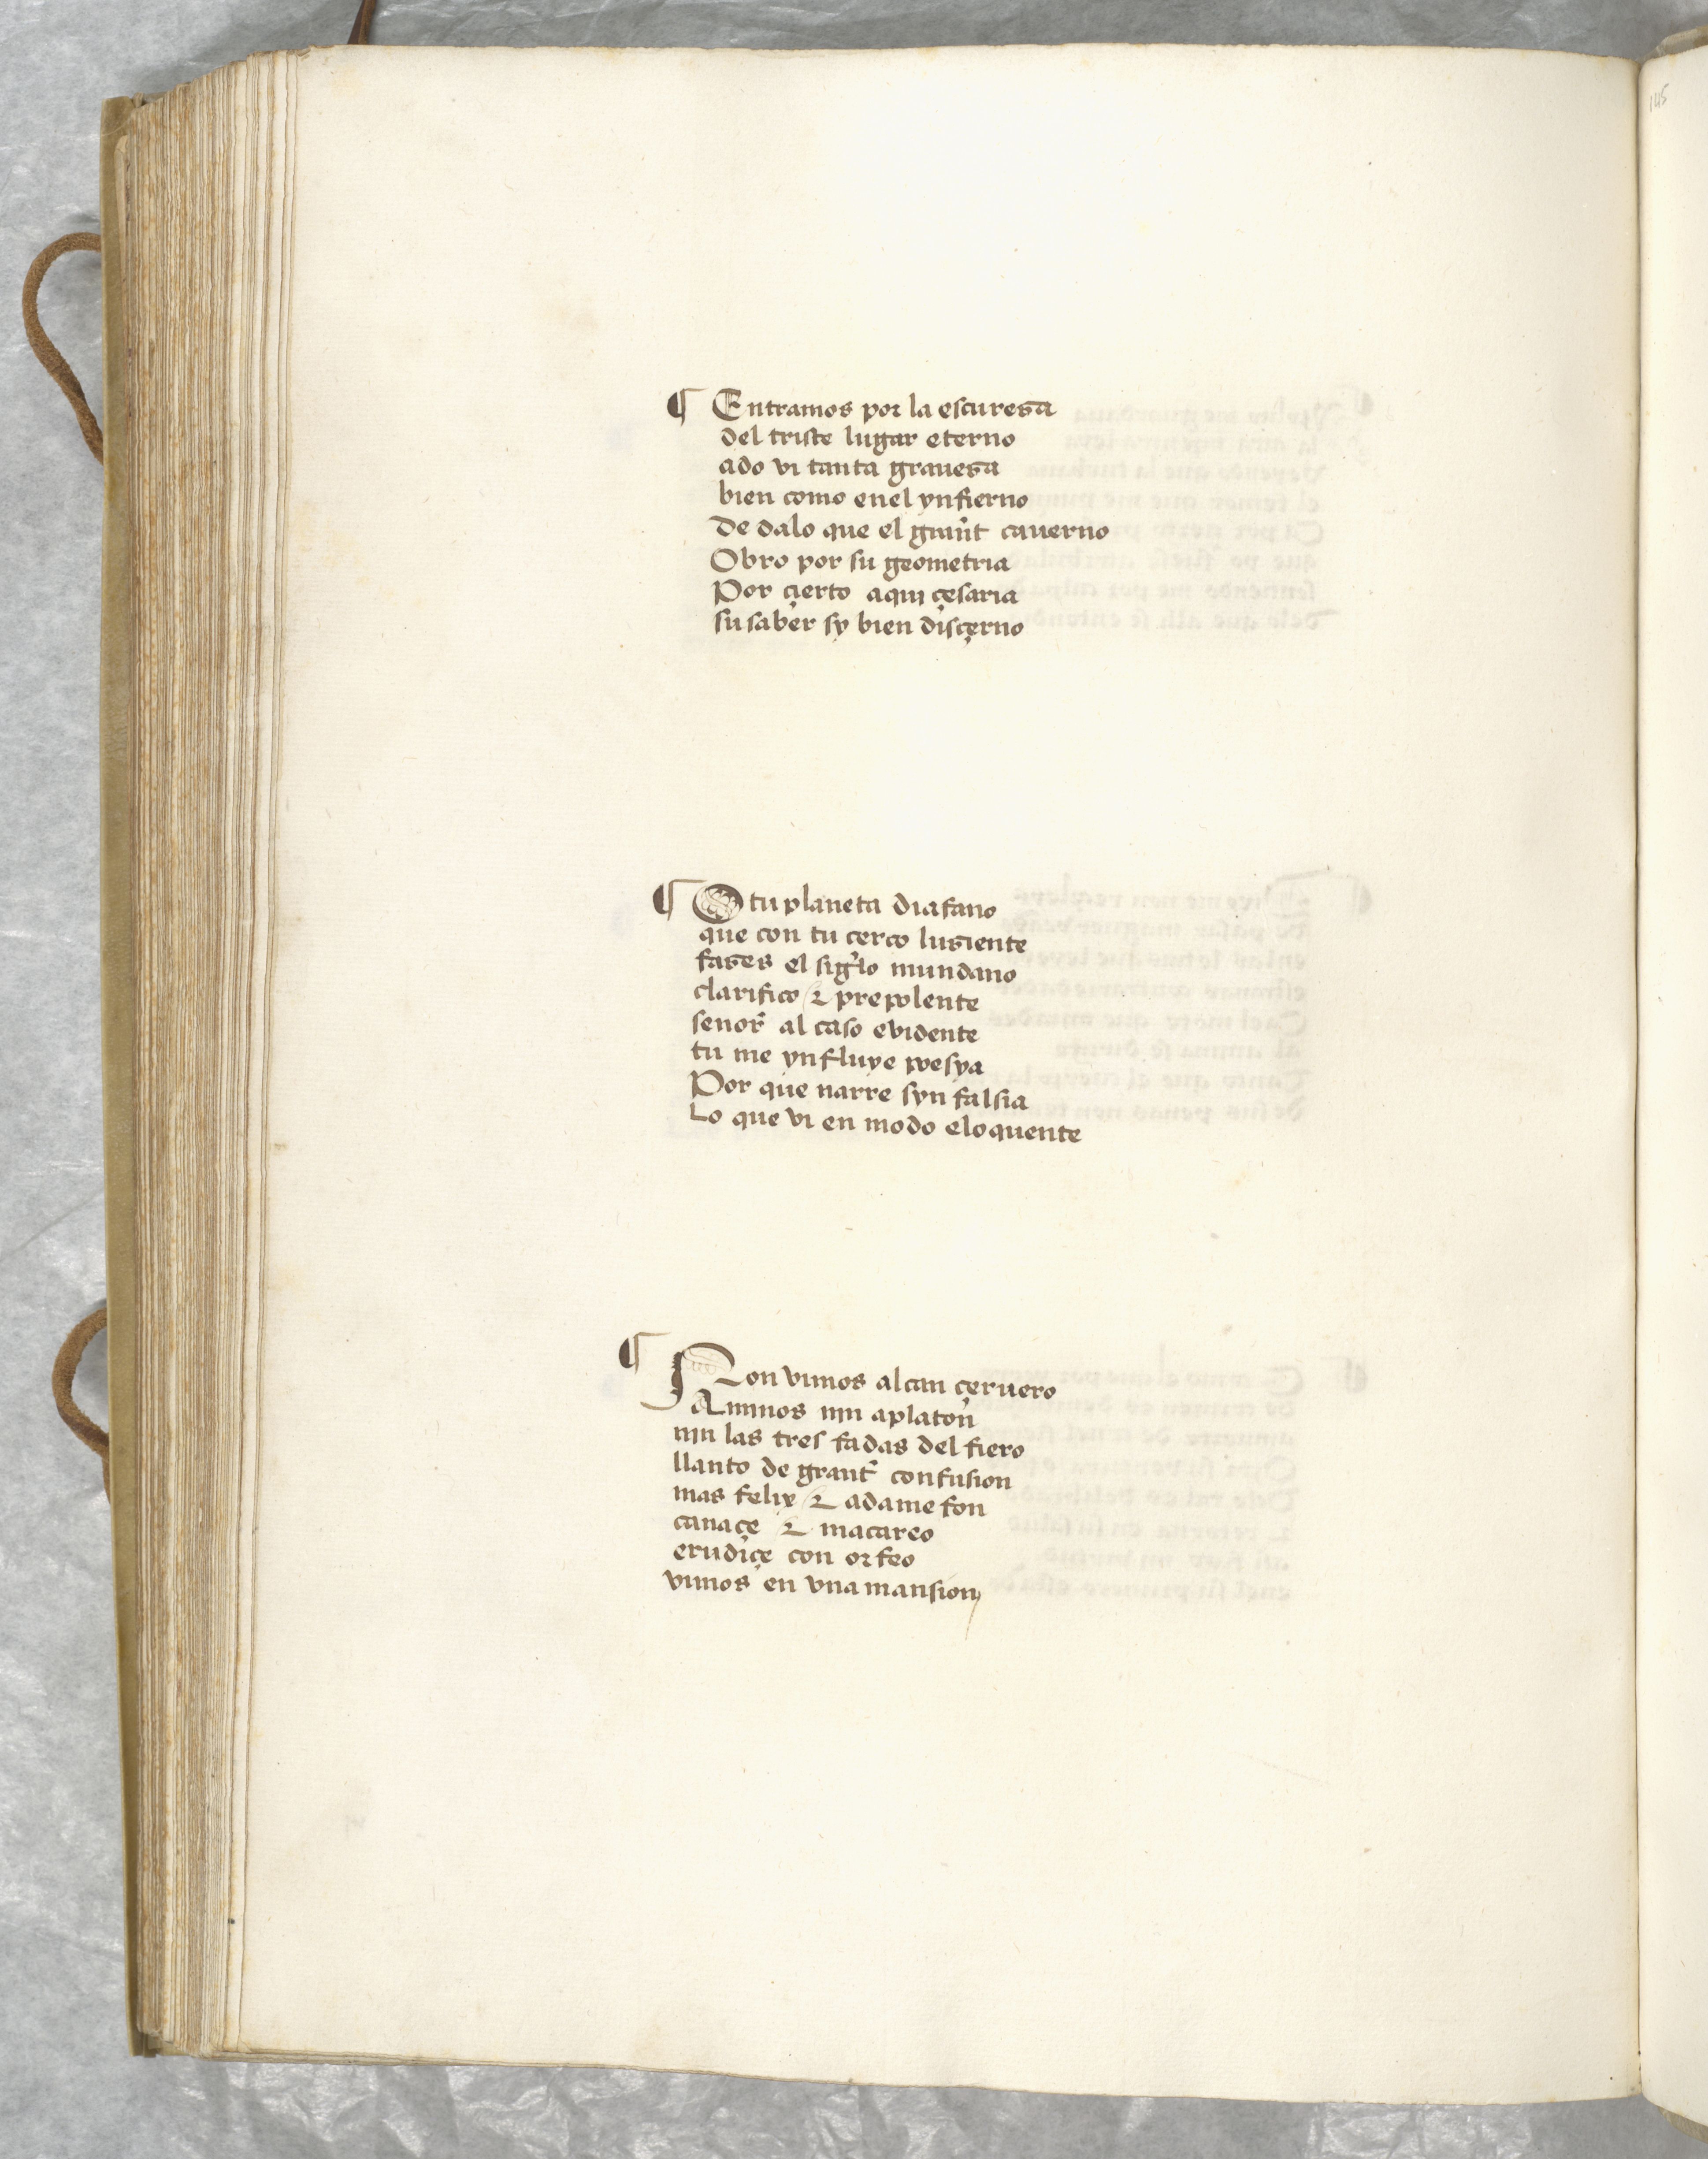 ¶ Entramos por la escureza
del triste lugar eterno
ado vi tanta graueza
bien como enel ynfierno
De dalo que el grañt cauerno
Obro por su geometria
Por çierto aqui çesaria
su saber sy bien disçerno
¶ O tu planeta diafano
que con tu cerco luziente
fazes el siglo mundano
clarifico & prepolente
senor al caso evidente
tu me ynfluye poesya
Por que narre syn falsia
Lo que vi en modo eloquente
¶ Non vimos alcan çeruero
Aminos nin aplaton
nin las tres fadas del fiero
llanto de grant confusion
mas felix & adamefon
canaçe & macareo
erudiçe con orfeo
vimos en vna mansion
145